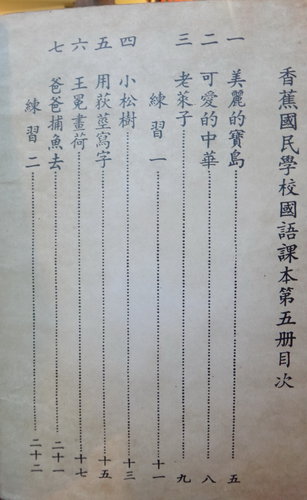 香蕉國民學校國語課本第五册目次
一 美麗的寶島 五
二 可愛的中華 八
三 老萊子 九
練習一 十一
四 小松樹 十三
五 用荻莖寫字 十五
六 王冕畫荷 十七
七 爸爸捕魚去 二十一
練習二 二十二